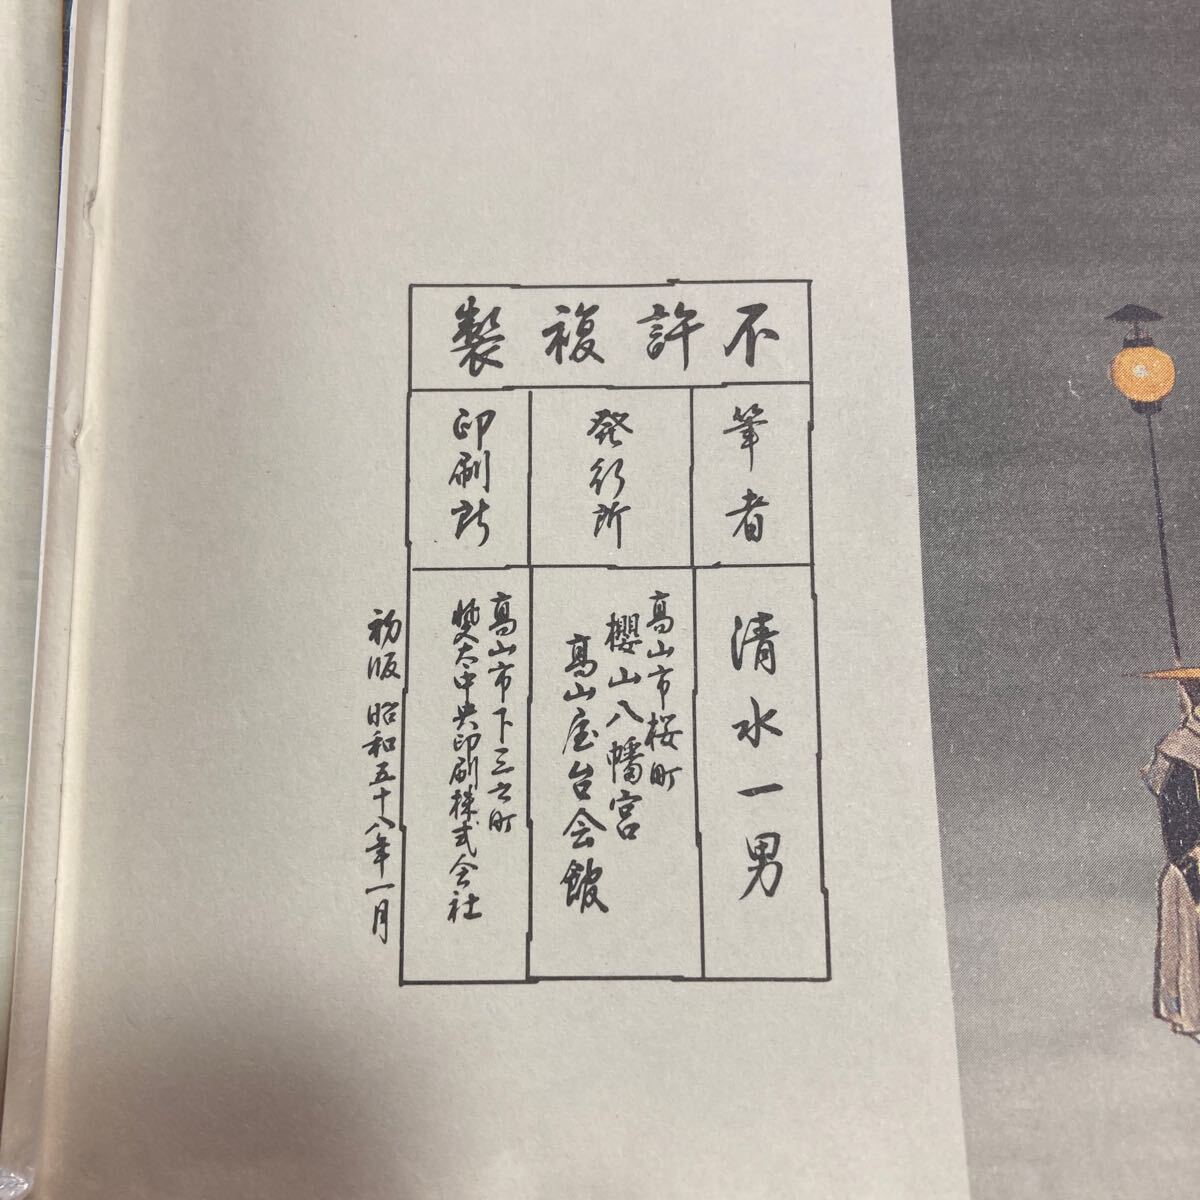 不許複製
筆者
清水一男
発行所
高山市桜町
櫻山八幡宮
高山屋台会館
印刷所
高山市下三之町
大中央印刷株式会社
初版 昭和五十八年一月